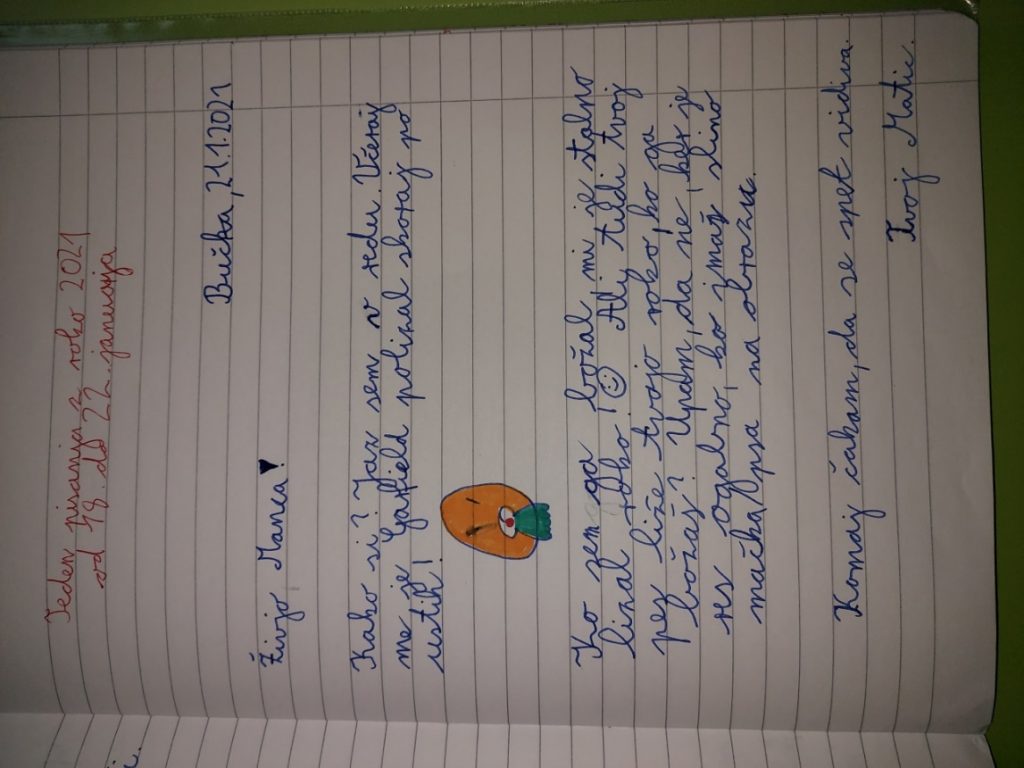 Teden pisanja z roko 2021
od 18. do 22. januarja
Bučka, 21.1.2021
Živjo Manca!
Kako si? Jaz sem v redu. Včeraj
me je Garfield polizal skoraj po
ustih!
Ko sem ga božal mi je stalno
lizal roko! ☺ Ali tudi tvoj
pes liže tvojo roko, ko ga
božaš? Upam, da ne, je
res ogabno, ko imaš slino
mačka/psa na obrazu.
Komaj čakam, da se spet vidiva.
Tvoj Matic.